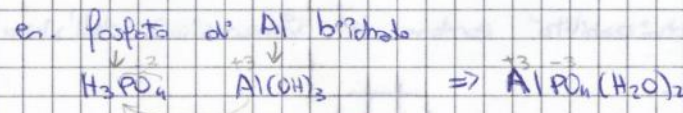 es. fosfato di Al biidrato
H₃PO₄ Al(OH)₃ => AlPO₄(H₂O)₂